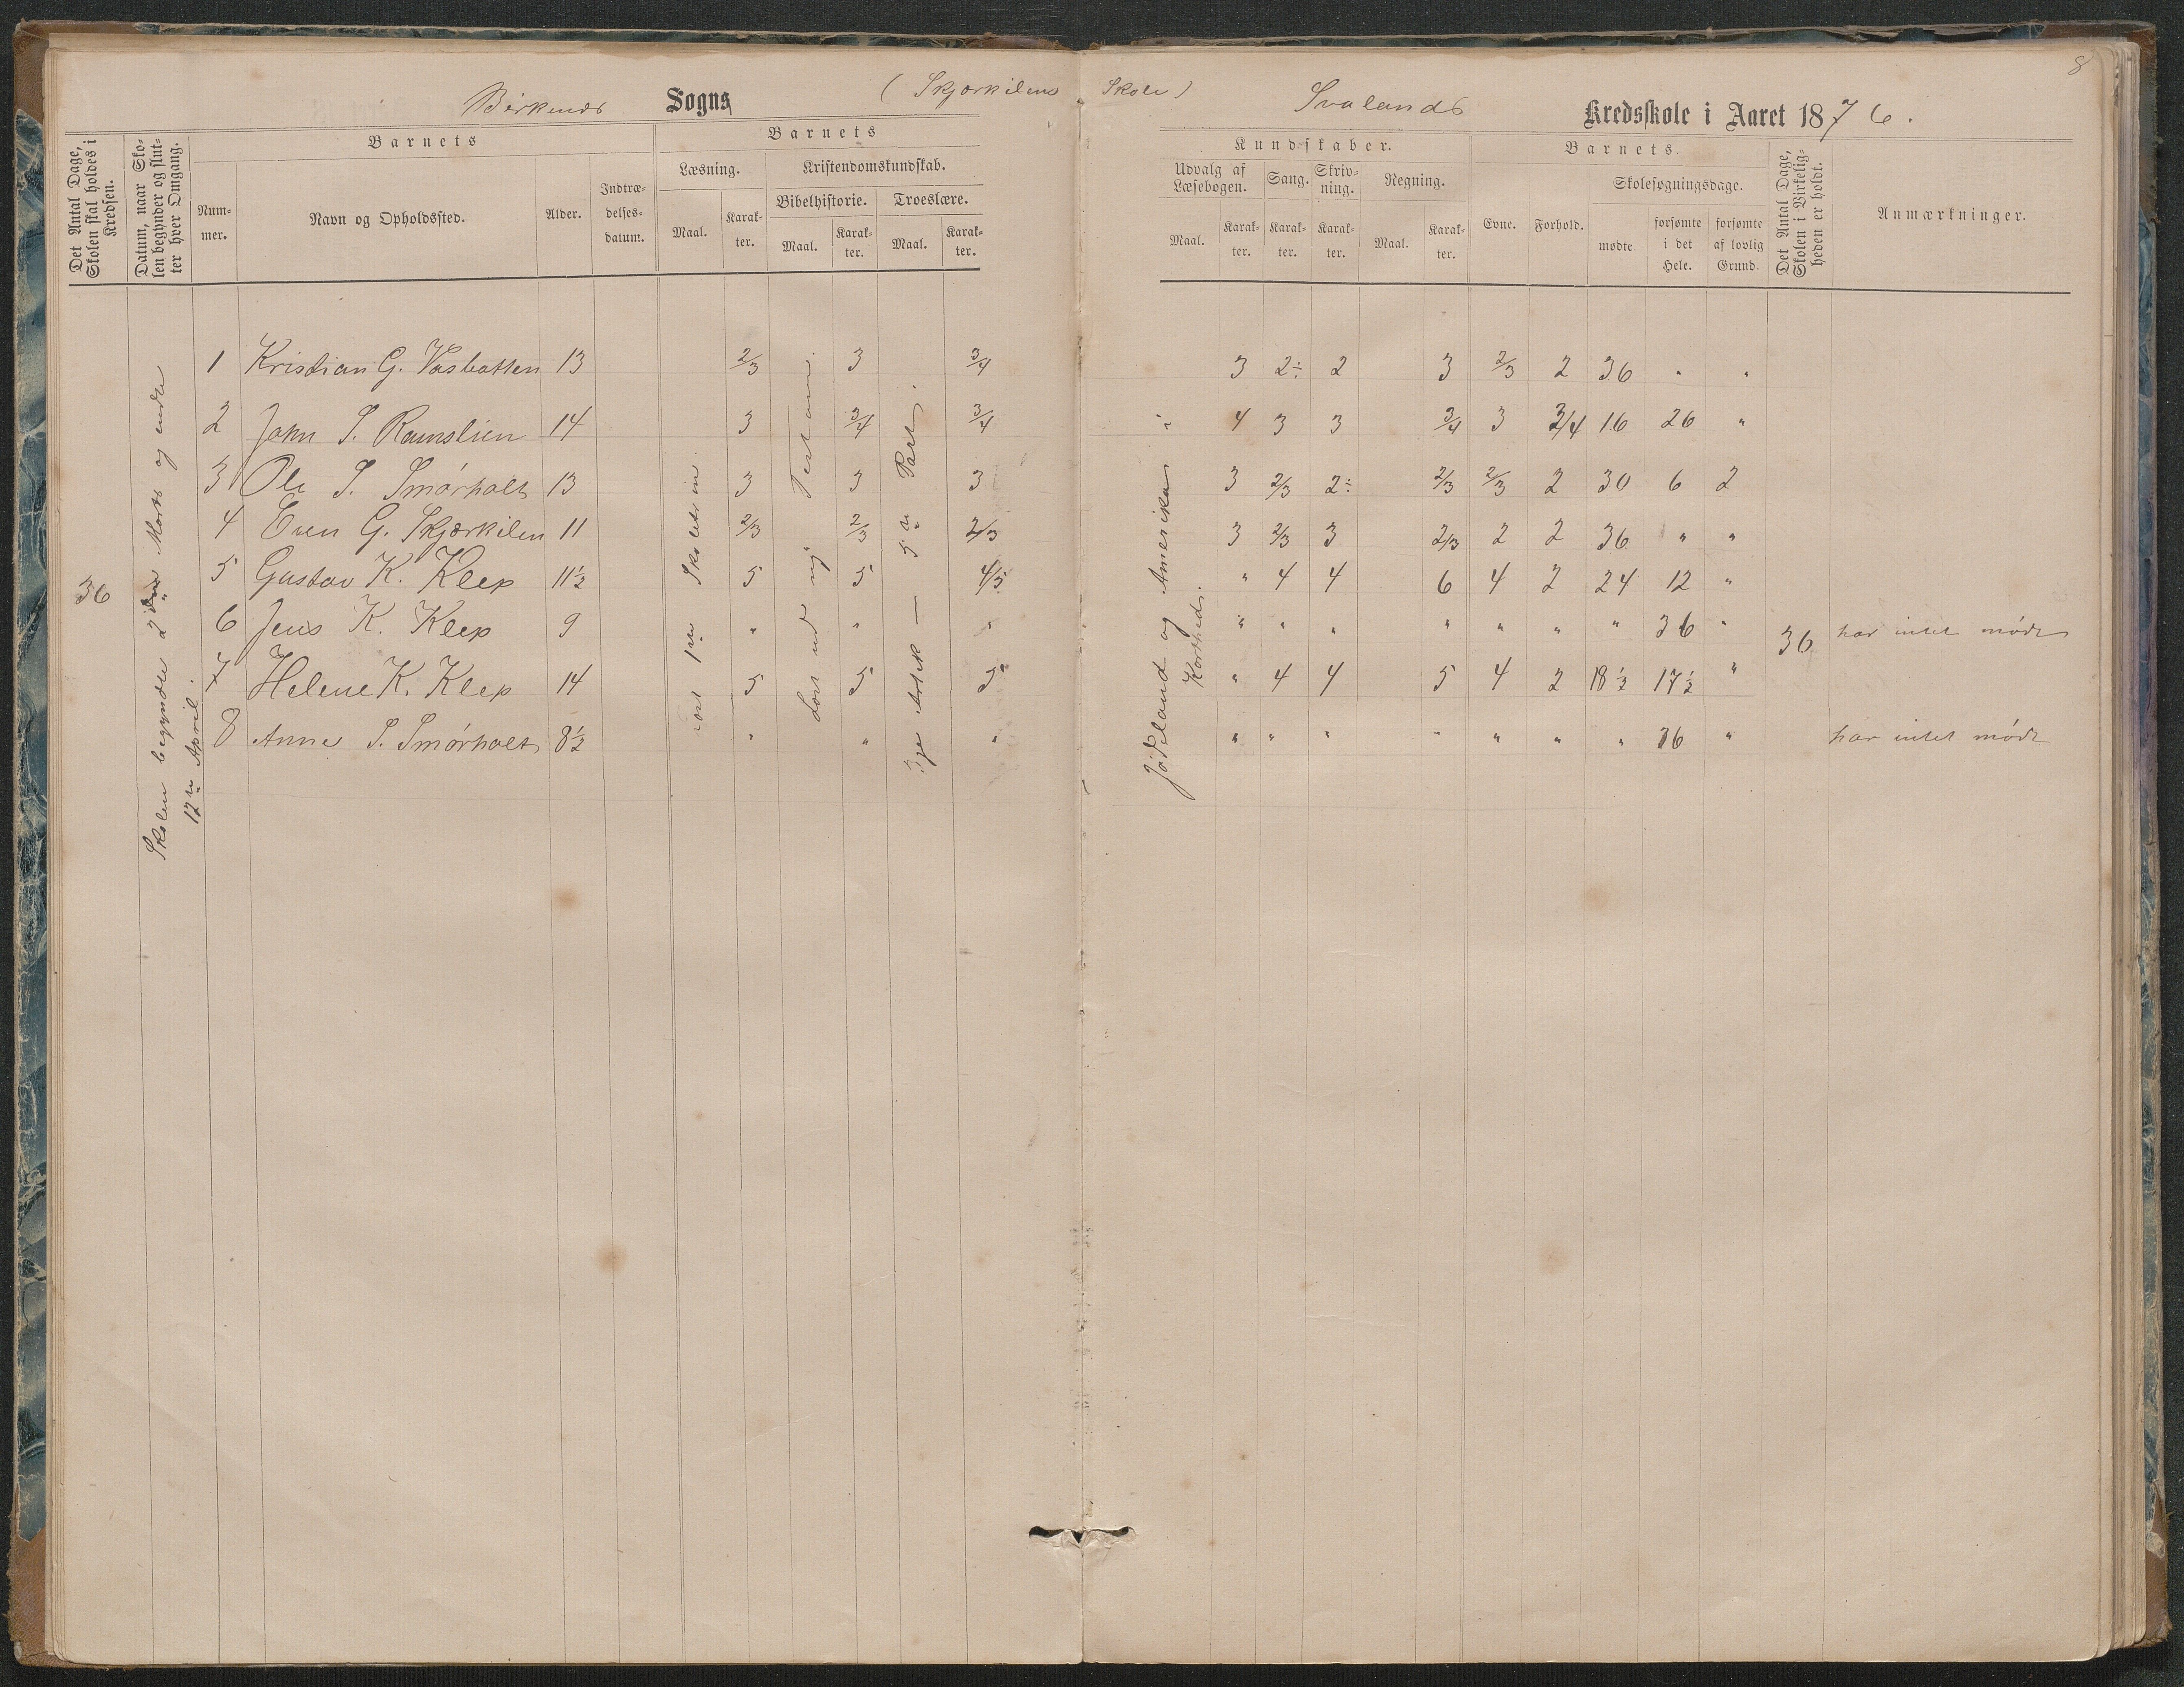 8
Birkenes Sogns (Skjærkilens Skole) Svalands Kredsskole i Aaret 1876.
Det Antal Dage, Skolen skal holdes i Kredsen.
Datum, naar Skolen begynder og slutter hver Omgang.
Barnets
Nummer.
Navn og Opholdssted.
Alder.
Indtrædelsesdatum.
Barnets
Læsning.
Maal.
Karakter.
Kristendomskundskab.
Bibelhistorie.
Maal.
Karakter.
Troeslære.
Maal.
Karakter.
Kundskaber.
Udvalg af Læsebogen.
Maal.
Karakter.
Sang.
Karakter.
Skrivning.
Karakter.
Regning.
Maal.
Karakter.
Barnets
Evne.
Forhold.
Skolesøgningsdage.
mødte
forsømte i det Hele.
forsømte af lovlig Grund.
Det Antal Dage, Skolen i Virkeligheden er holdt.
Anmærkninger.
36
Skolen begyndte 2den Marts og endte
12te April.
1 Kristian G. Vasbotten 13 2/3 3 3/4 3 2÷ 2 3 2/3 2 36 " "
2 John S. Ramslien 14 3 3/4 3/4 4 3 3 3/4 3 3/4 16 20 "
3 Ole S. Smørholt 13 3 3 3 3 2/3 2÷ 2/3 2/3 2 30 6 2
4 Even G. Skjærkilen 11 2/3 2/3 2/3 3 2/3 3 2/3 2 2 36 " "
5 Gustav K. Klep 11½ 5 5 4/5 " 4 4 6 4 2 24 12 "
6 Jens K. Klep 9 " " " " " " " " " " 36 " har intet mødt
7 Helene K. Klep 14 5 5 5 " 4 4 5 4 2 18½ 17½ "
8 Anne S. Smørholt 8½ " " " " " " " " " " 36 " har intet mødt
36
Skoletrin.
Testam.
3je Artik — 5te Part.
Jødeland og Amerika i
Korthed.